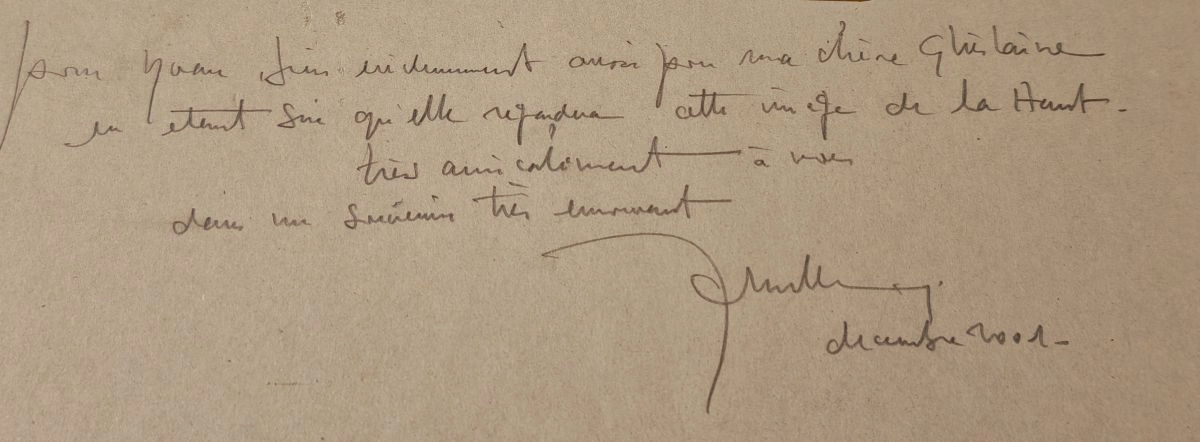 pour Yvan, bien evidemment aussi pour ma chère Ghislaine
en etant sûr qu'elle regardera cette image de la Haut -
très amicalement à vous
dans un souvenir très emouvant
decembre 2001 -